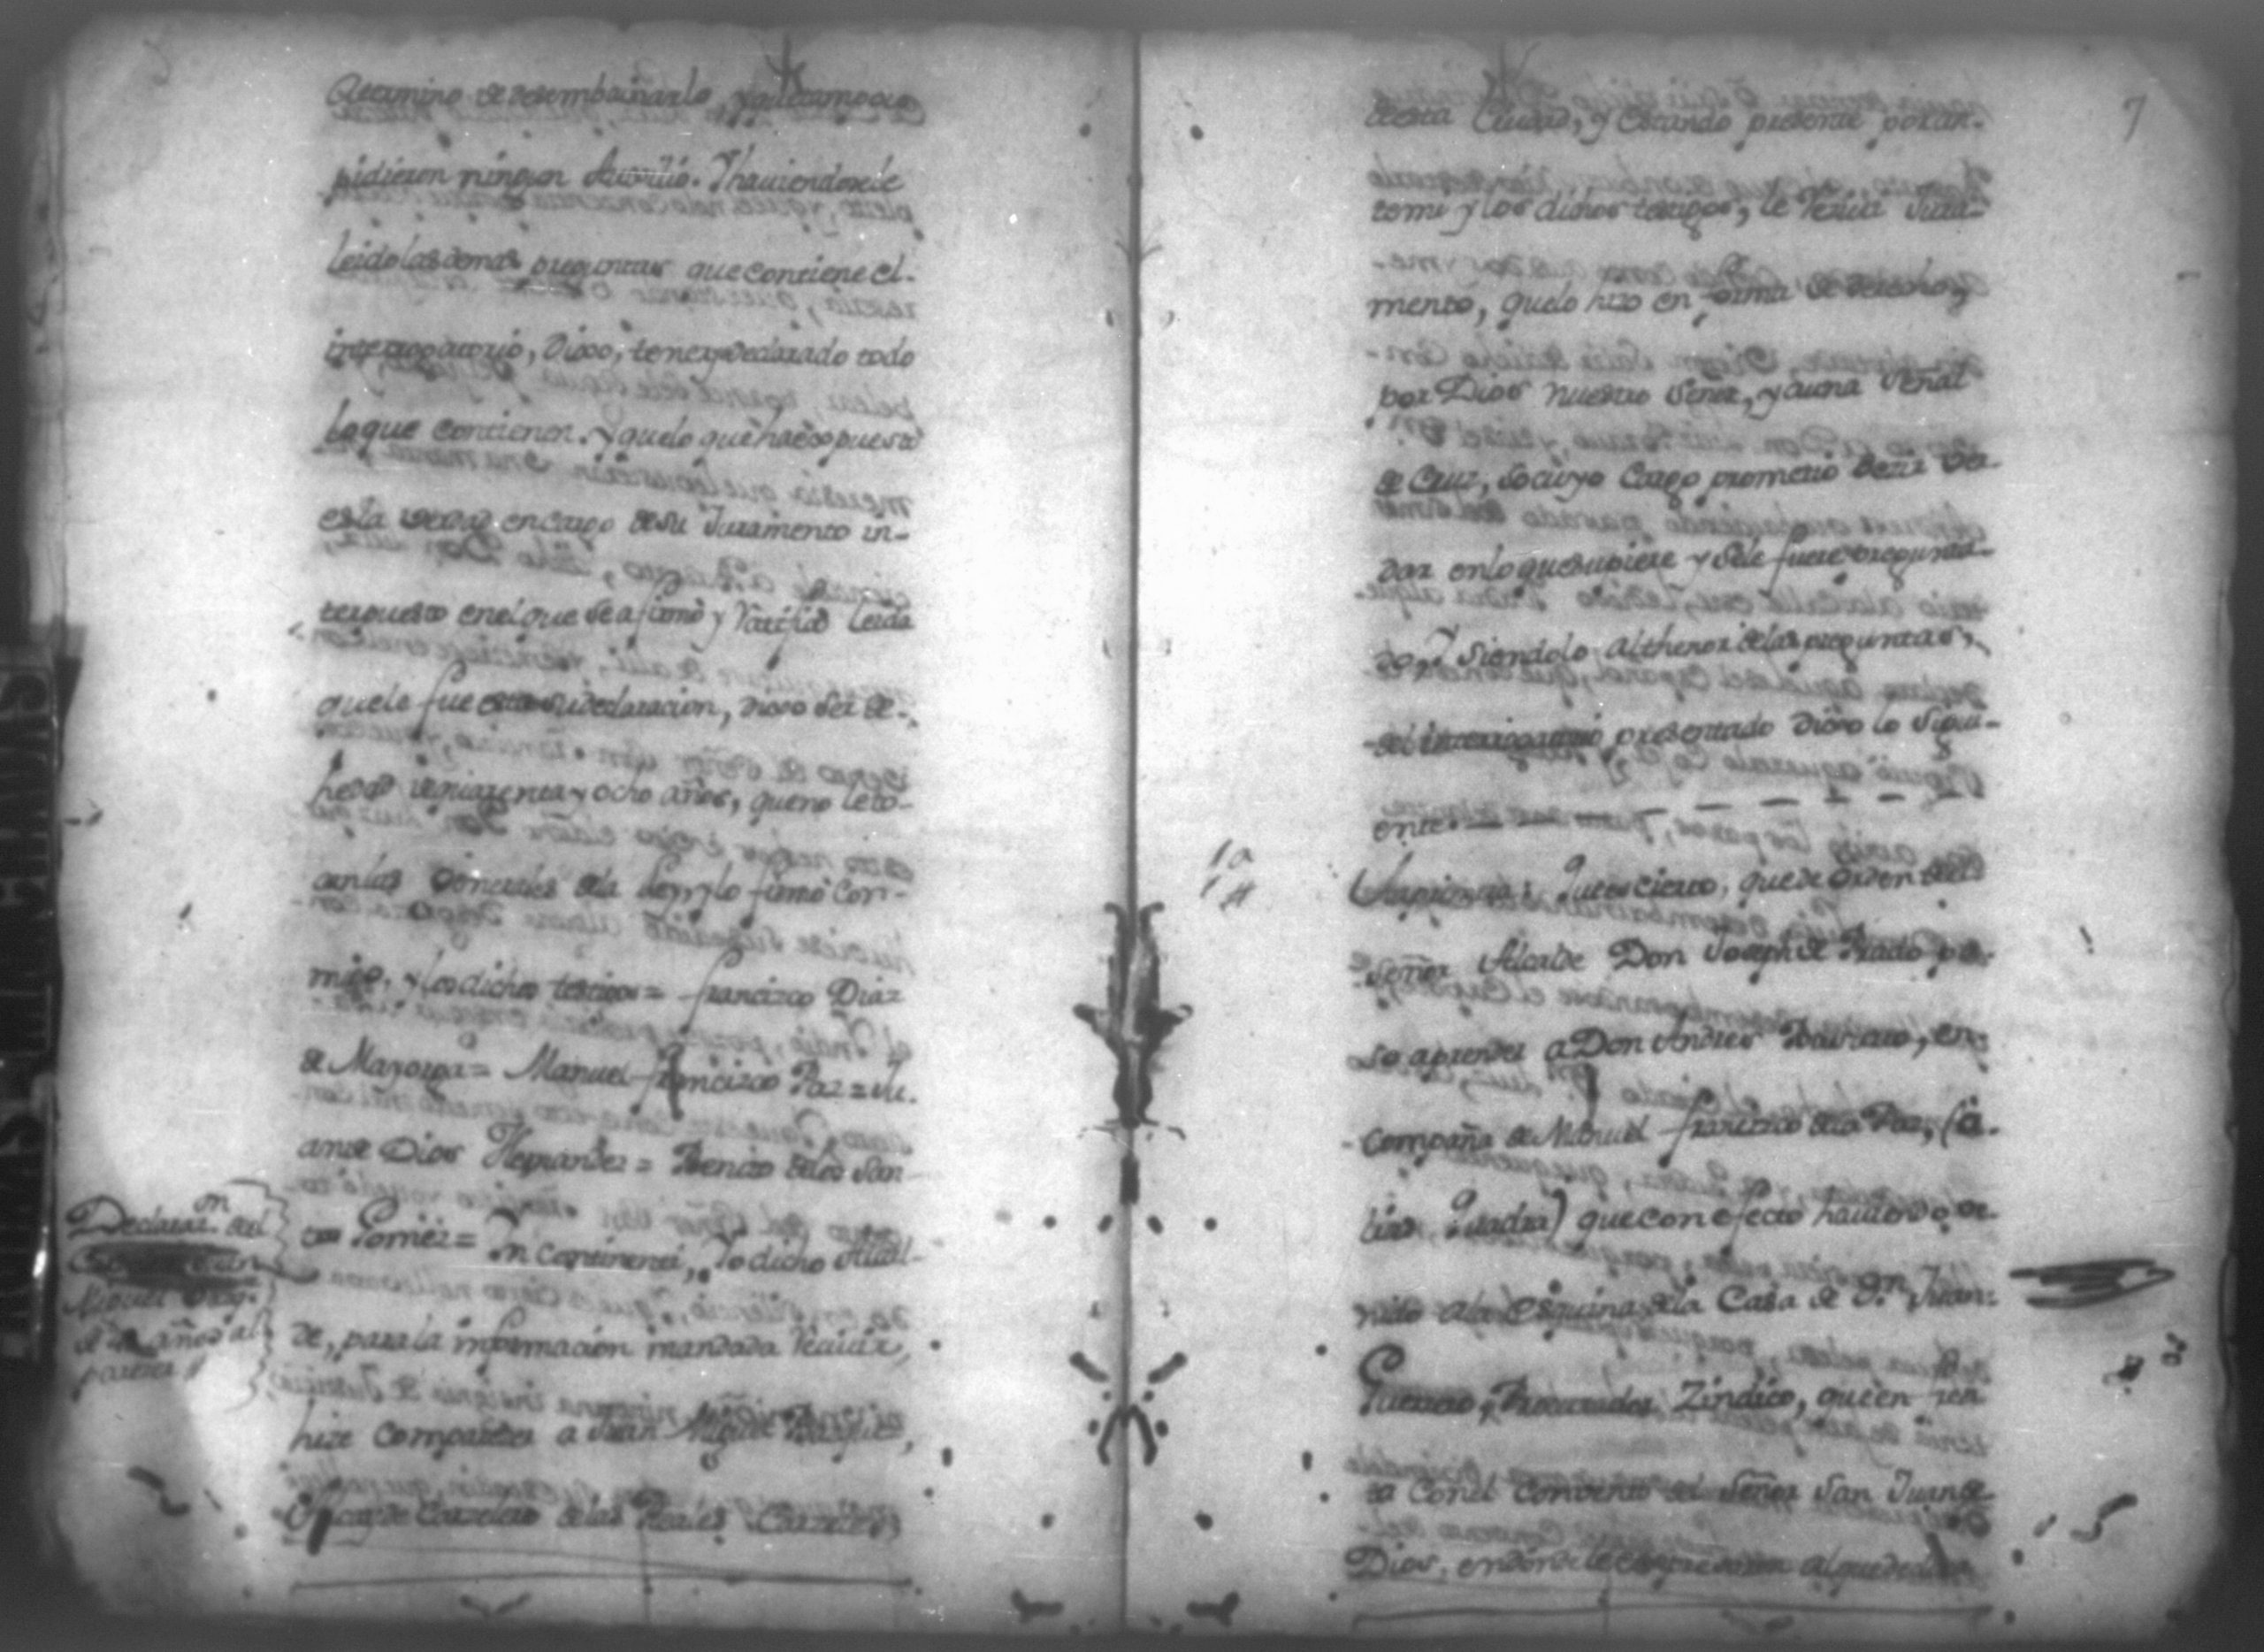 determino de desembainarlo, y que tampoco
pidieron ningun Auxilio. Y haviendosele
leido las demas preguntas que contiene el
interrogatorio, Dixo, tener declarado todo
lo que contienen. Y que lo que ha expuesto
es la verdad en cargo de su Juramento in-
terpuesto en el que se afirmò y ratificò leida
que le fue esta su declaracion, dixo ser de
hedad de quarenta y ocho años, que no le to-
can las Generales de la Ley, y lo firmò con-
migo, y los dichos testigos = Francisco Diaz
de Mayorga = Manuel Francisco Paz = Ju-
an de Dios Hernandez = Benito de los San-
tos Gomez = In continenti, Yo dicho Alcal-
de, para la informacion mandada recivir,
hize comparecer a Juan Miguel
Alcayde Carzelero de las Reales Carzeles
Declaraz.n del
Miguel
de años al
parecer
7
de esta Ciudad, y estando presente por an-
te mi y los dichos testigos, le recivi Jura-
mento, que lo hizo en forma de derecho,
por Dios Nuestro Señor, y a una Señal
de Cruz, so cuyo Cargo prometio dezir ver-
dad en lo que supiere y se le fuere pregunta-
do, y siendolo al thenor de las preguntas,
del interrogatorio presentado Dixo lo sigui-
ente.
1a
A la primera: Que es cierto, que de orden del
Señor Alcalde Don Joseph de Prado pa-
so aprender a Don Andres en
compaña de Manuel Francisco de la Paz, (a-
lias Quadra) que con efecto haviendo ve-
nido a la Esquina de la Casa de Dn. Juan
Guerrero, Procurador Zindico, que en fren-
ta con el Convento del Señor San Juan de
Dios, en donde le expresaron al que declara